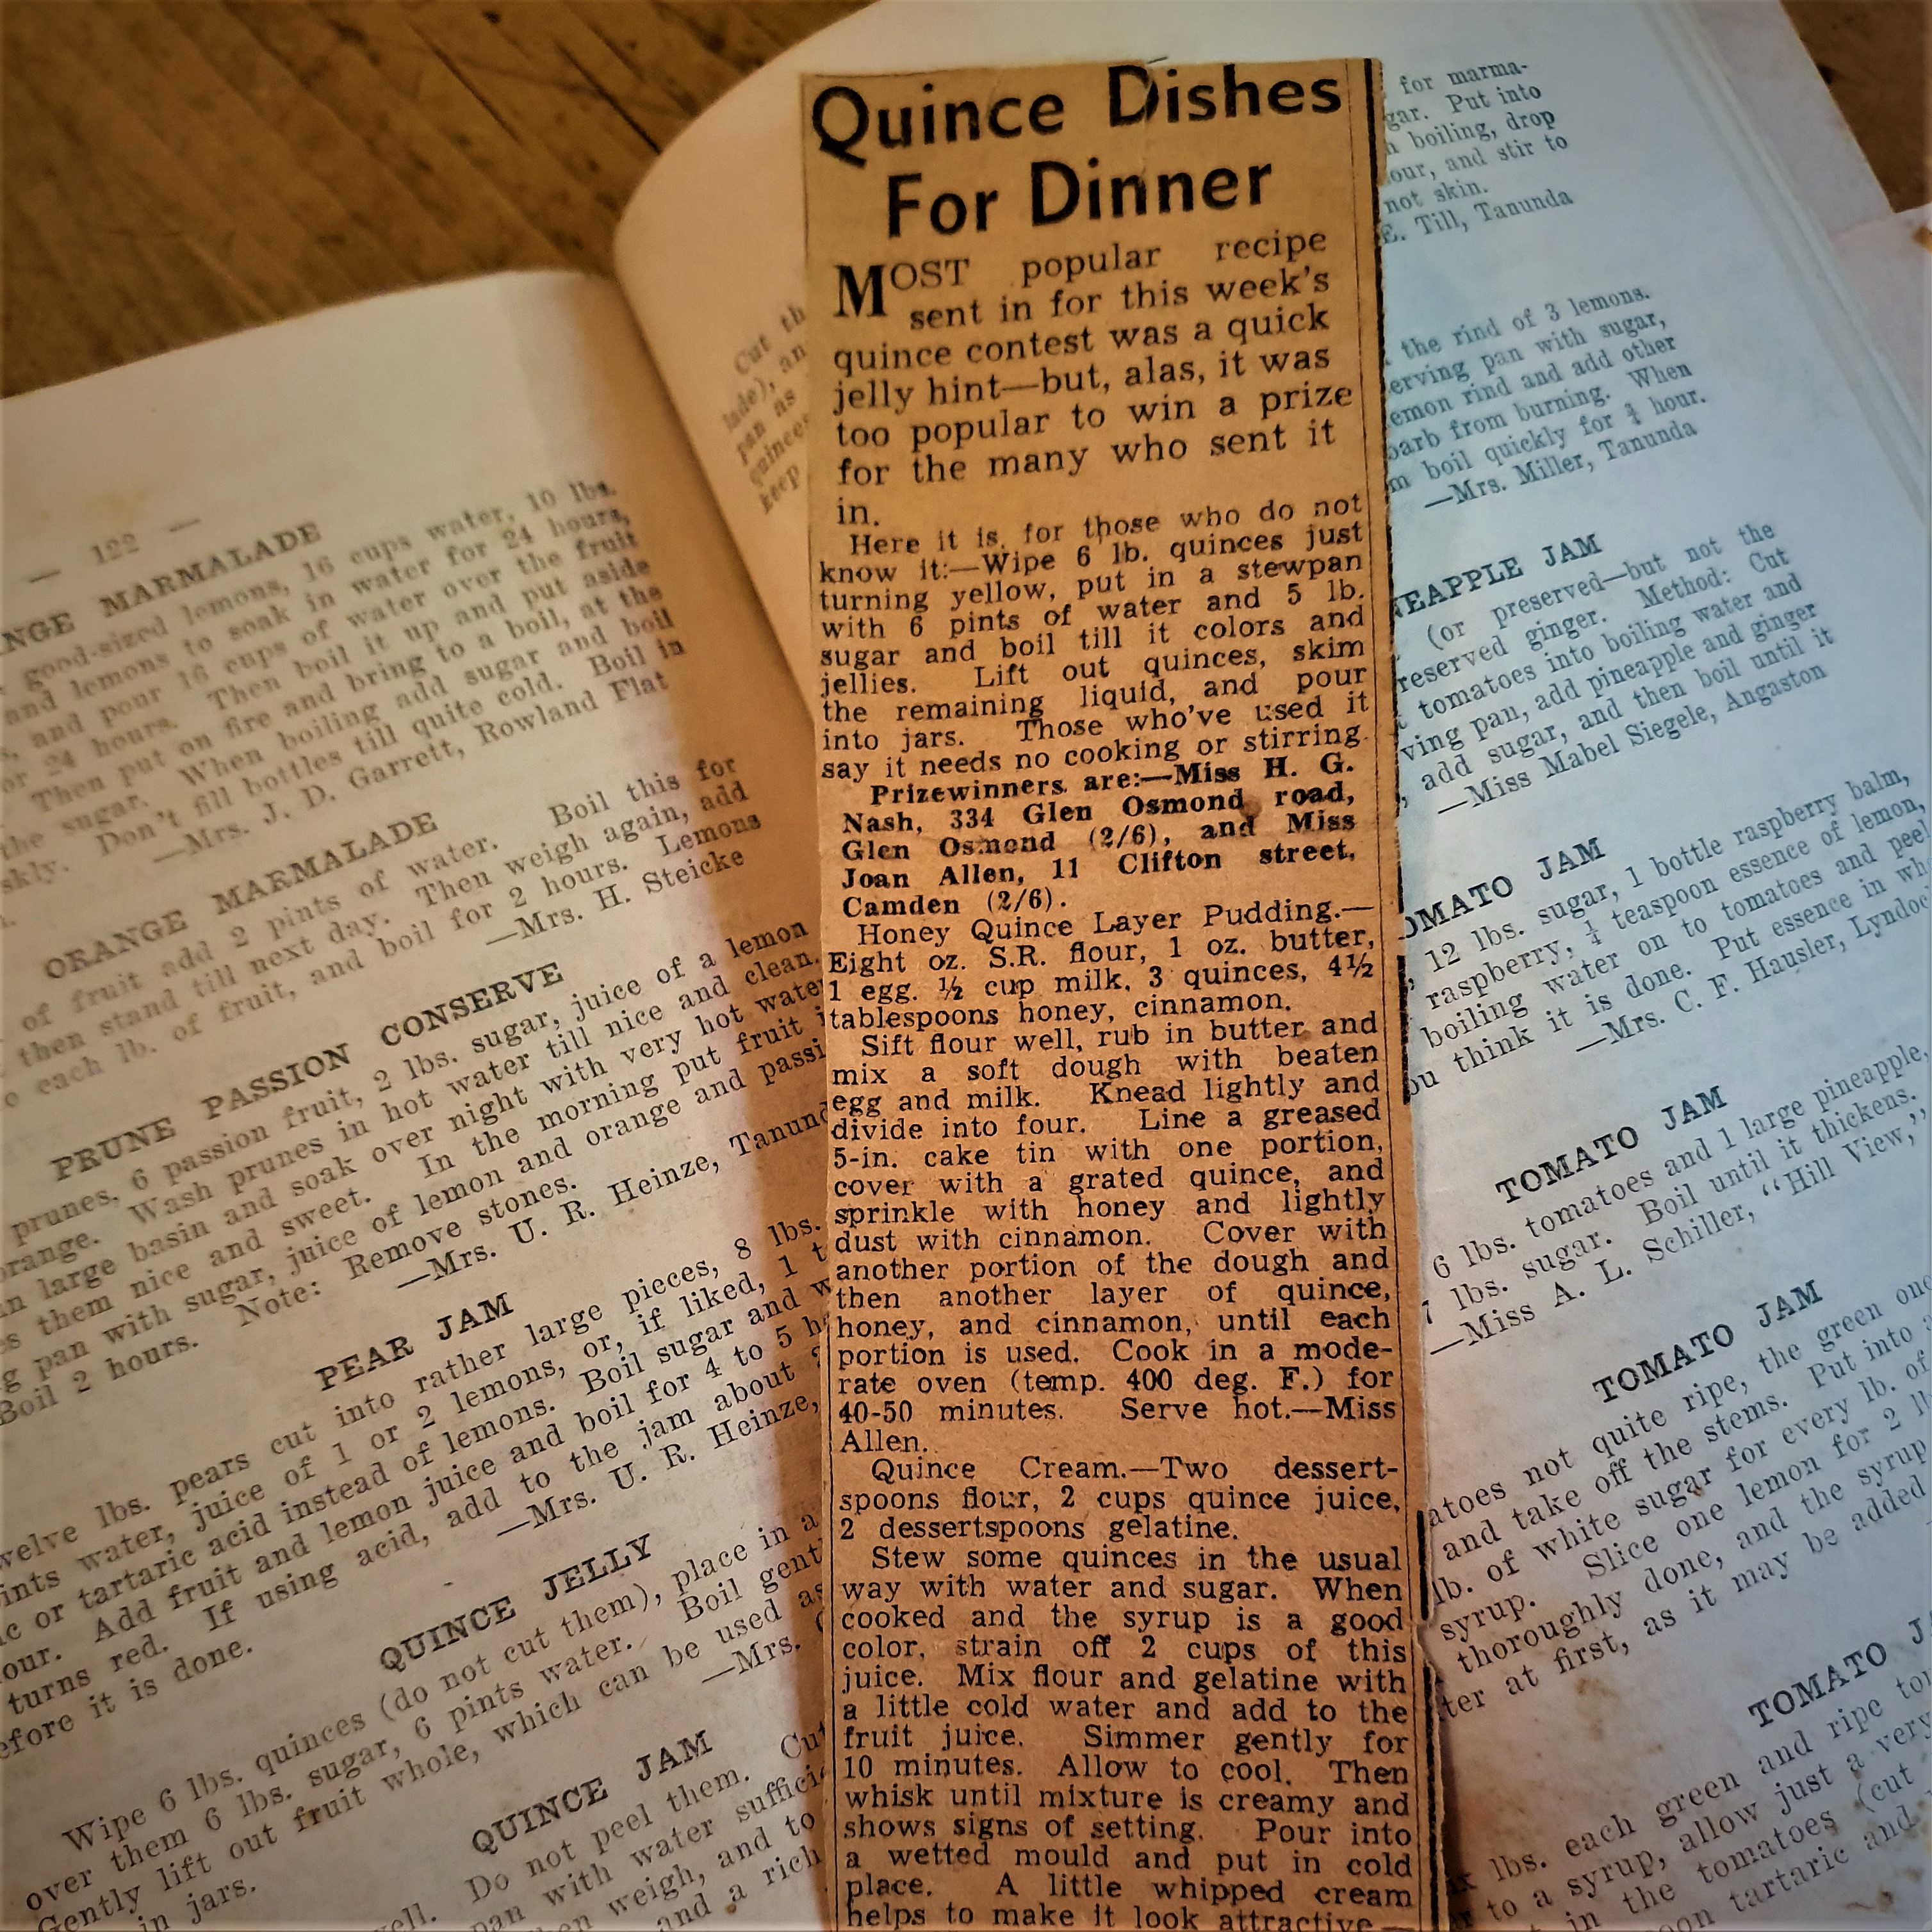 — 122 —
NGE MARMALADE
good-sized lemons, 16 cups water, 10 lbs.
and lemons to soak in water for 24 hours,
and pour 16 cups of water over the fruit
or 24 hours. Then boil it up and put aside
Then put on fire and bring to a boil, at the
the sugar. When boiling add sugar and boil
skly. Don't fill bottles till quite cold. Boil in
—Mrs. J. D. Garrett, Rowland Flat
ORANGE MARMALADE
of fruit add 2 pints of water. Boil this for
then stand till next day. Then weigh again, add
o each lb. of fruit, and boil for 2 hours. Lemons
—Mrs. H. Steicke
PRUNE PASSION CONSERVE
prunes, 6 passion fruit, 2 lbs. sugar, juice of a lemon
orange. Wash prunes in hot water till nice and clean.
n large basin and soak over night with very hot water
es them nice and sweet. In the morning put fruit i
g pan with sugar, juice of lemon and orange and passi
Boil 2 hours. Note: Remove stones.
—Mrs. U. R. Heinze, Tanund
PEAR JAM
welve lbs. pears cut into rather large pieces, 8 lbs.
ints water, juice of 1 or 2 lemons, or, if liked, 1 t
ic or tartaric acid instead of lemons. Boil sugar and w
our. Add fruit and lemon juice and boil for 4 to 5 h
turns red. If using acid, add to the jam about
efore it is done.
—Mrs. U. R. Heinze,
QUINCE JELLY
Wipe 6 lbs. quinces (do not cut them), place in a
over them 6 lbs. sugar, 6 pints water. Boil gent
Gently lift out fruit whole, which can be used as
in jars.
—Mrs.
QUINCE JAM
ell. Do not peel them. Cut
pan with water suffici
en weigh, and to
and a rich
Cut th
lade), an
pan as
quinces
keep
Quince Dishes
For Dinner
MOST popular recipe
sent in for this week's
quince contest was a quick
jelly hint—but, alas, it was
too popular to win a prize
for the many who sent it
in.
Here it is, for those who do not
know it:—Wipe 6 lb. quinces just
turning yellow, put in a stewpan
with 6 pints of water and 5 lb.
sugar and boil till it colors and
jellies. Lift out quinces, skim
the remaining liquid, and pour
into jars. Those who've used it
say it needs no cooking or stirring.
Prizewinners are:—Miss H. G.
Nash, 334 Glen Osmond road,
Glen Osmond (2/6), and Miss
Joan Allen, 11 Clifton street,
Camden (2/6).
Honey Quince Layer Pudding.—
Eight oz. S.R. flour, 1 oz. butter,
1 egg. ½ cup milk, 3 quinces, 4½
tablespoons honey, cinnamon.
Sift flour well, rub in butter and
mix a soft dough with beaten
egg and milk. Knead lightly and
divide into four. Line a greased
5-in. cake tin with one portion,
cover with a grated quince, and
sprinkle with honey and lightly
dust with cinnamon. Cover with
another portion of the dough and
then another layer of quince,
honey, and cinnamon, until each
portion is used. Cook in a mode-
rate oven (temp. 400 deg. F.) for
40-50 minutes. Serve hot.—Miss
Allen.
Quince Cream.—Two dessert-
spoons flour, 2 cups quince juice,
2 dessertspoons gelatine.
Stew some quinces in the usual
way with water and sugar. When
cooked and the syrup is a good
color, strain off 2 cups of this
juice. Mix flour and gelatine with
a little cold water and add to the
fruit juice. Simmer gently for
10 minutes. Allow to cool. Then
whisk until mixture is creamy and
shows signs of setting. Pour into
a wetted mould and put in cold
place. A little whipped cream
helps to make it look attractive.—
for marma-
gar. Put into
n boiling, drop
our, and stir to
not skin.
E. Till, Tanunda
the rind of 3 lemons.
erving pan with sugar,
emon rind and add other
barb from burning. When
m boil quickly for ¾ hour.
—Mrs. Miller, Tanunda
NEAPPLE JAM
(or preserved—but not the
reserved ginger. Method: Cut
tomatoes into boiling water and
ving pan, add pineapple and ginger
, add sugar, and then boil until it
—Miss Mabel Siegele, Angaston
OMATO JAM
12 lbs. sugar, 1 bottle raspberry balm,
raspberry, ¼ teaspoon essence of lemon,
boiling water on to tomatoes and peel
ou think it is done. Put essence in wh
—Mrs. C. F. Hausler, Lyndoc
TOMATO JAM
6 lbs. tomatoes and 1 large pineapple,
7 lbs. sugar. Boil until it thickens.
—Miss A. L. Schiller, "Hill View,"
TOMATO JAM
atoes not quite ripe, the green one
and take off the stems. Put into a
lb. of white sugar for every lb. of
syrup. Slice one lemon for 2 lb
thoroughly done, and the syrup
ter at first, as it may be added
TOMATO J
lbs. each green and ripe tom
r to a syrup, allow just a very
t in the tomatoes (cut
oon tartaric and